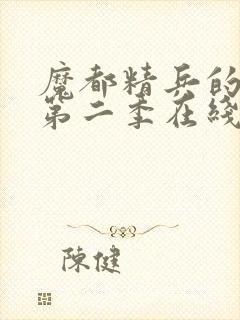 魔都精兵的
第二季在綫
陳健